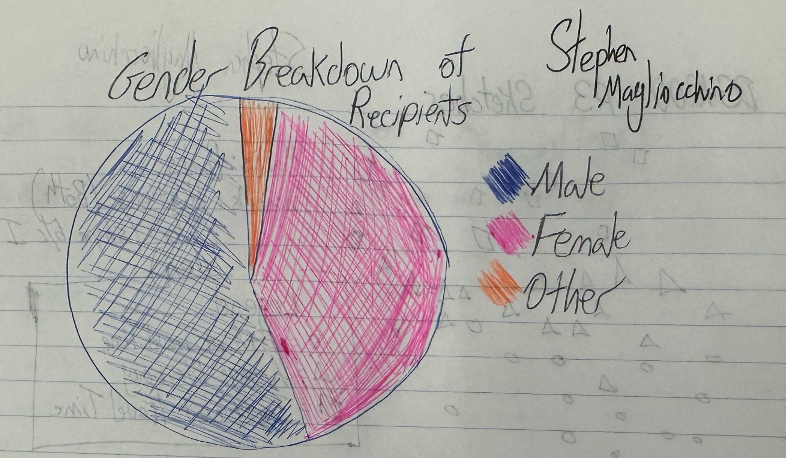 Gender Breakdown of
Recipients
Stephen
Magliocchino
Male
Female
Other